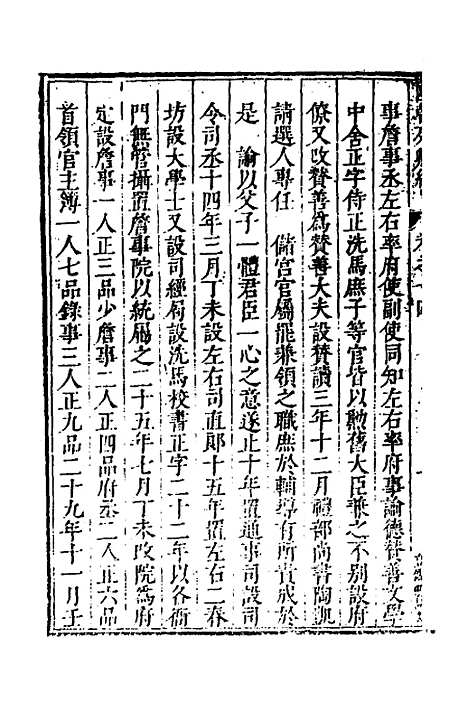 事詹事丞左右率府使副使同知左右率府事諭德贊善文學
中舍正字侍正洗馬庶子等官皆以勲舊大臣兼之不別設府
僚又改贊善爲贊善大夫設贊讀三年十二月禮部尚書陶凱
請選人專任　儲宮官屬罷兼領之職庶於輔導有所責成於
是　諭以父子一體君臣一心之意遂止十年置通事司設司
令司丞十四年三月丁未設左右司直郎十五年置左右二春
坊設大學士又設司經局設洗馬校書正字二十二年以各衙
門無管攝置詹事院以統屬之二十五年七月丁未改院爲府
定設詹事一人正三品少詹事二人正四品府丞二人正六品
首領官主簿一人七品錄事三人正九品二十九年十一月于